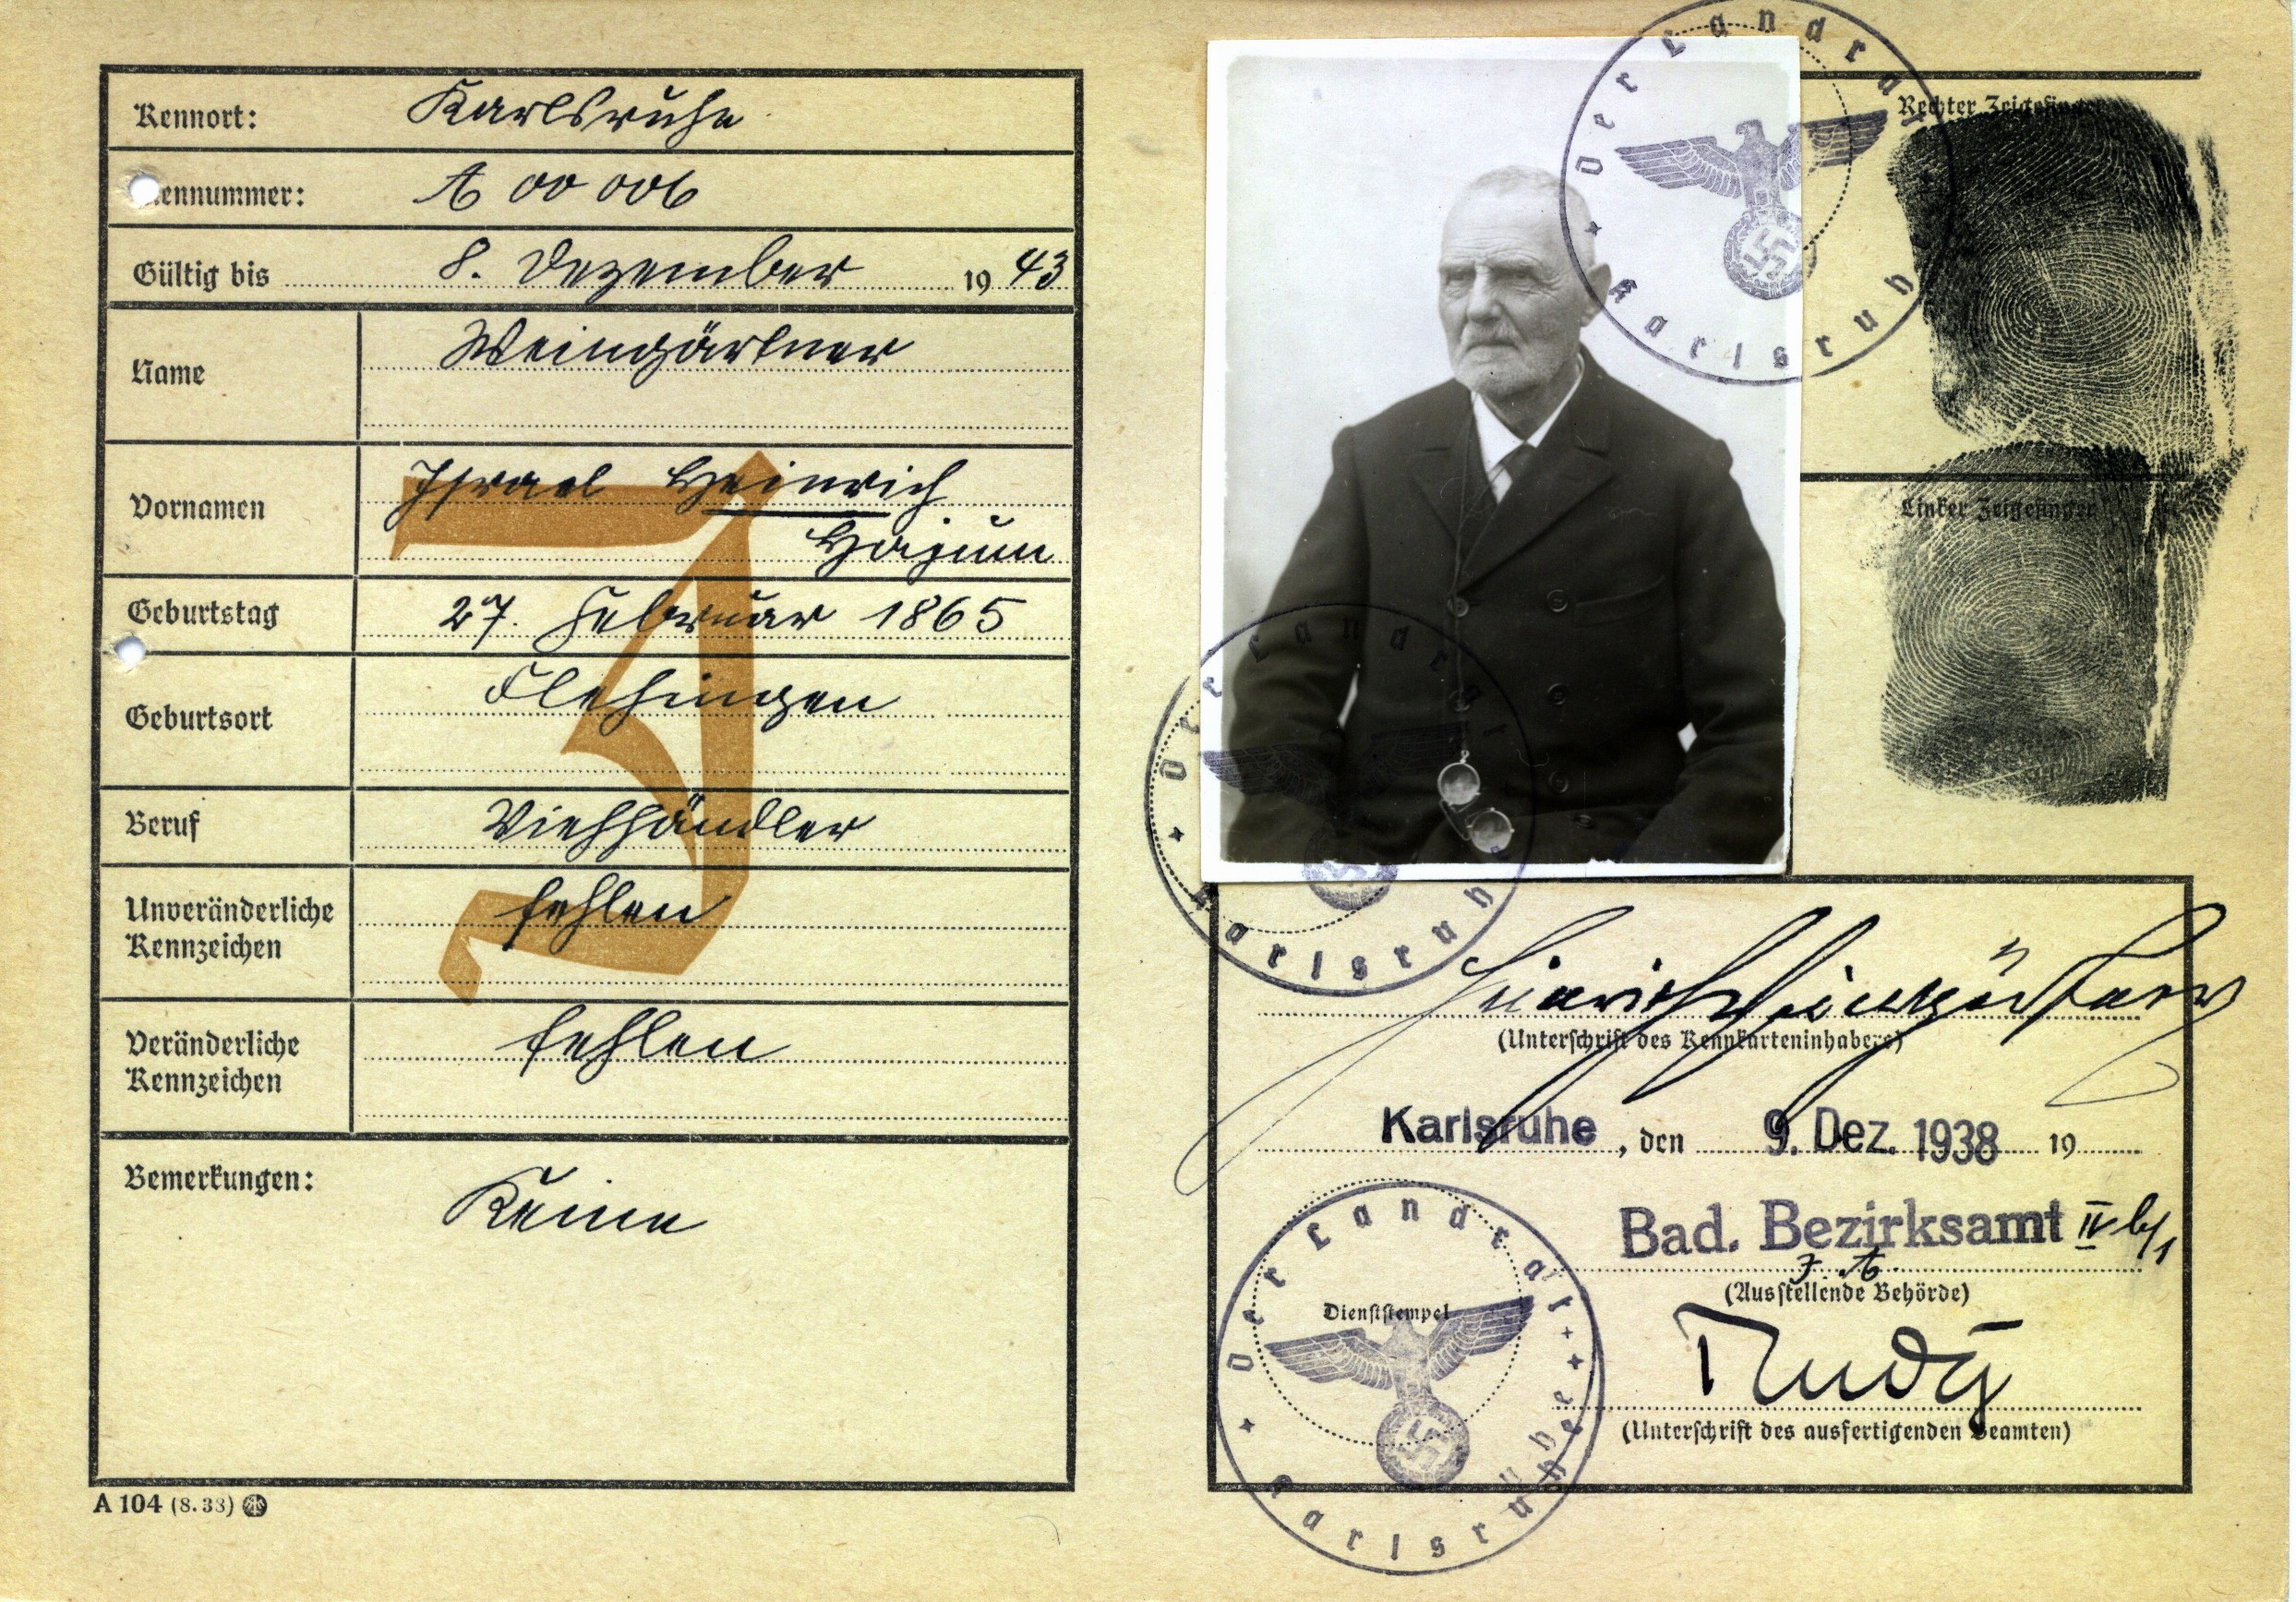 Kennort: Karlsruhe
Kennummer: A 00 006
Gültig bis 8. Dezember 1943
Name Weingärtner
Vornamen Israel Heinrich
Hajum
Geburtstag 27. Februar 1865
Geburtsort Flehingen
Beruf Viehhändler
Unveränderliche Kennzeichen fehlen
Veränderliche Kennzeichen fehlen
Bemerkungen: Keine
A 104 (8. 38)
J
Der Landrat
Karlsruhe
Rechter Zeigefinger
Linker Zeigefinger
Der Landrat
Karlsruhe
Heinrich Weingärtner
(Unterschrift des Kennkarteninhabers)
Karlsruhe, den 9. Dez. 1938 19
Bad. Bezirksamt IV b/1
J. A.
(Ausstellende Behörde)
Der Landrat
Karlsruhe
Dienststempel
(Unterschrift des ausfertigenden Beamten)